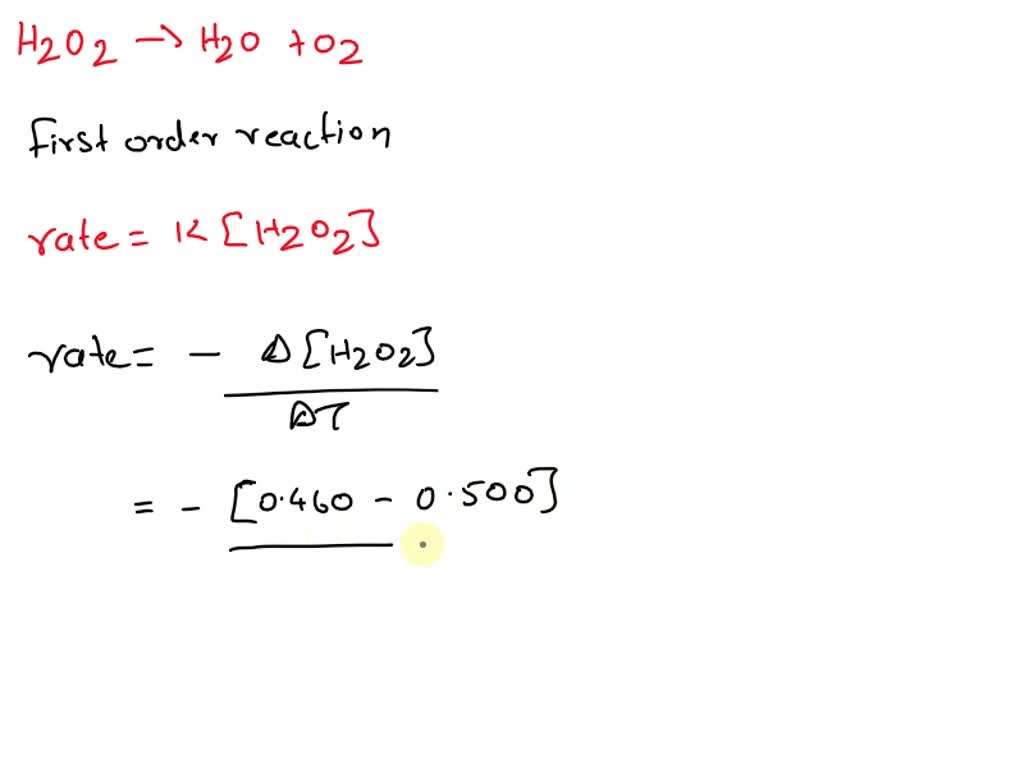 H2O2 → H2O + O2
First order reaction
rate = K [H2O2]
rate = - Δ[H2O2]
ΔT
= - [0.460 - 0.500]